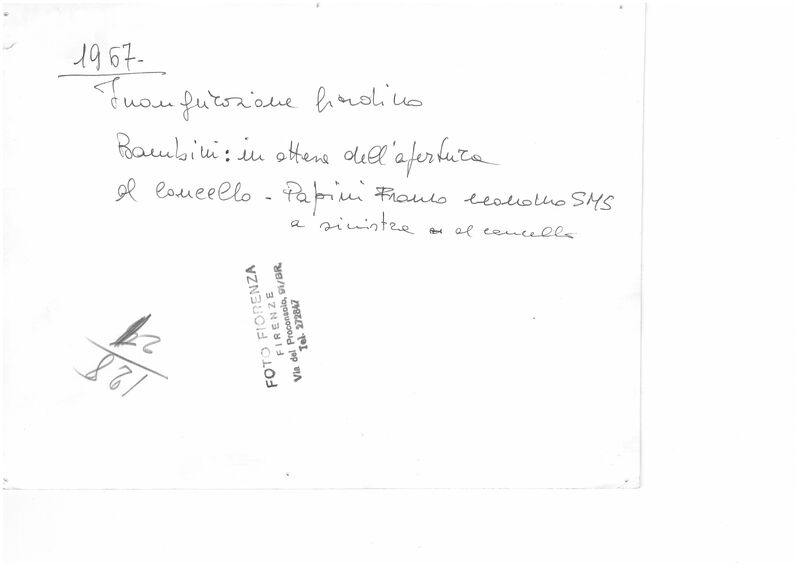 1967-
Inaugurazione Giardino
Bambini: in attesa dell'apertura
al cancello - Papini Franco economo SMS
a sinistra al cancello
FOTO FIORENZA
FIRENZE
Via del Proconsolo, 9i/BR.
Tel. 272847
128